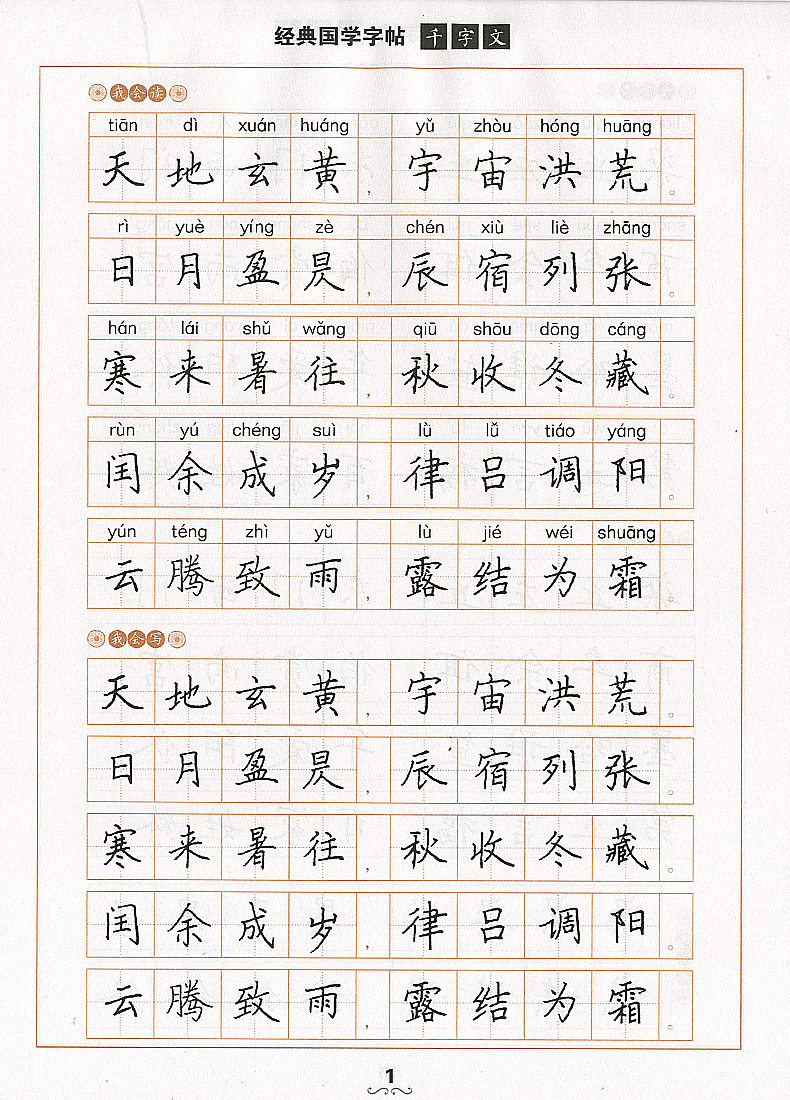 经典国学字帖 千字文
我会读
tiān dì xuán huáng yǔ zhòu hóng huāng
天地玄黄，宇宙洪荒。
rì yuè yíng zè chén xiù liè zhāng
日月盈昃，辰宿列张。
hán lái shǔ wǎng qiū shōu dōng cáng
寒来暑往，秋收冬藏。
rùn yú chéng suì lǜ lǚ tiáo yáng
闰余成岁，律吕调阳。
yún téng zhì yǔ lù jié wéi shuāng
云腾致雨，露结为霜。
我会写
天地玄黄，宇宙洪荒。
日月盈昃，辰宿列张。
寒来暑往，秋收冬藏。
闰余成岁，律吕调阳。
云腾致雨，露结为霜。
1